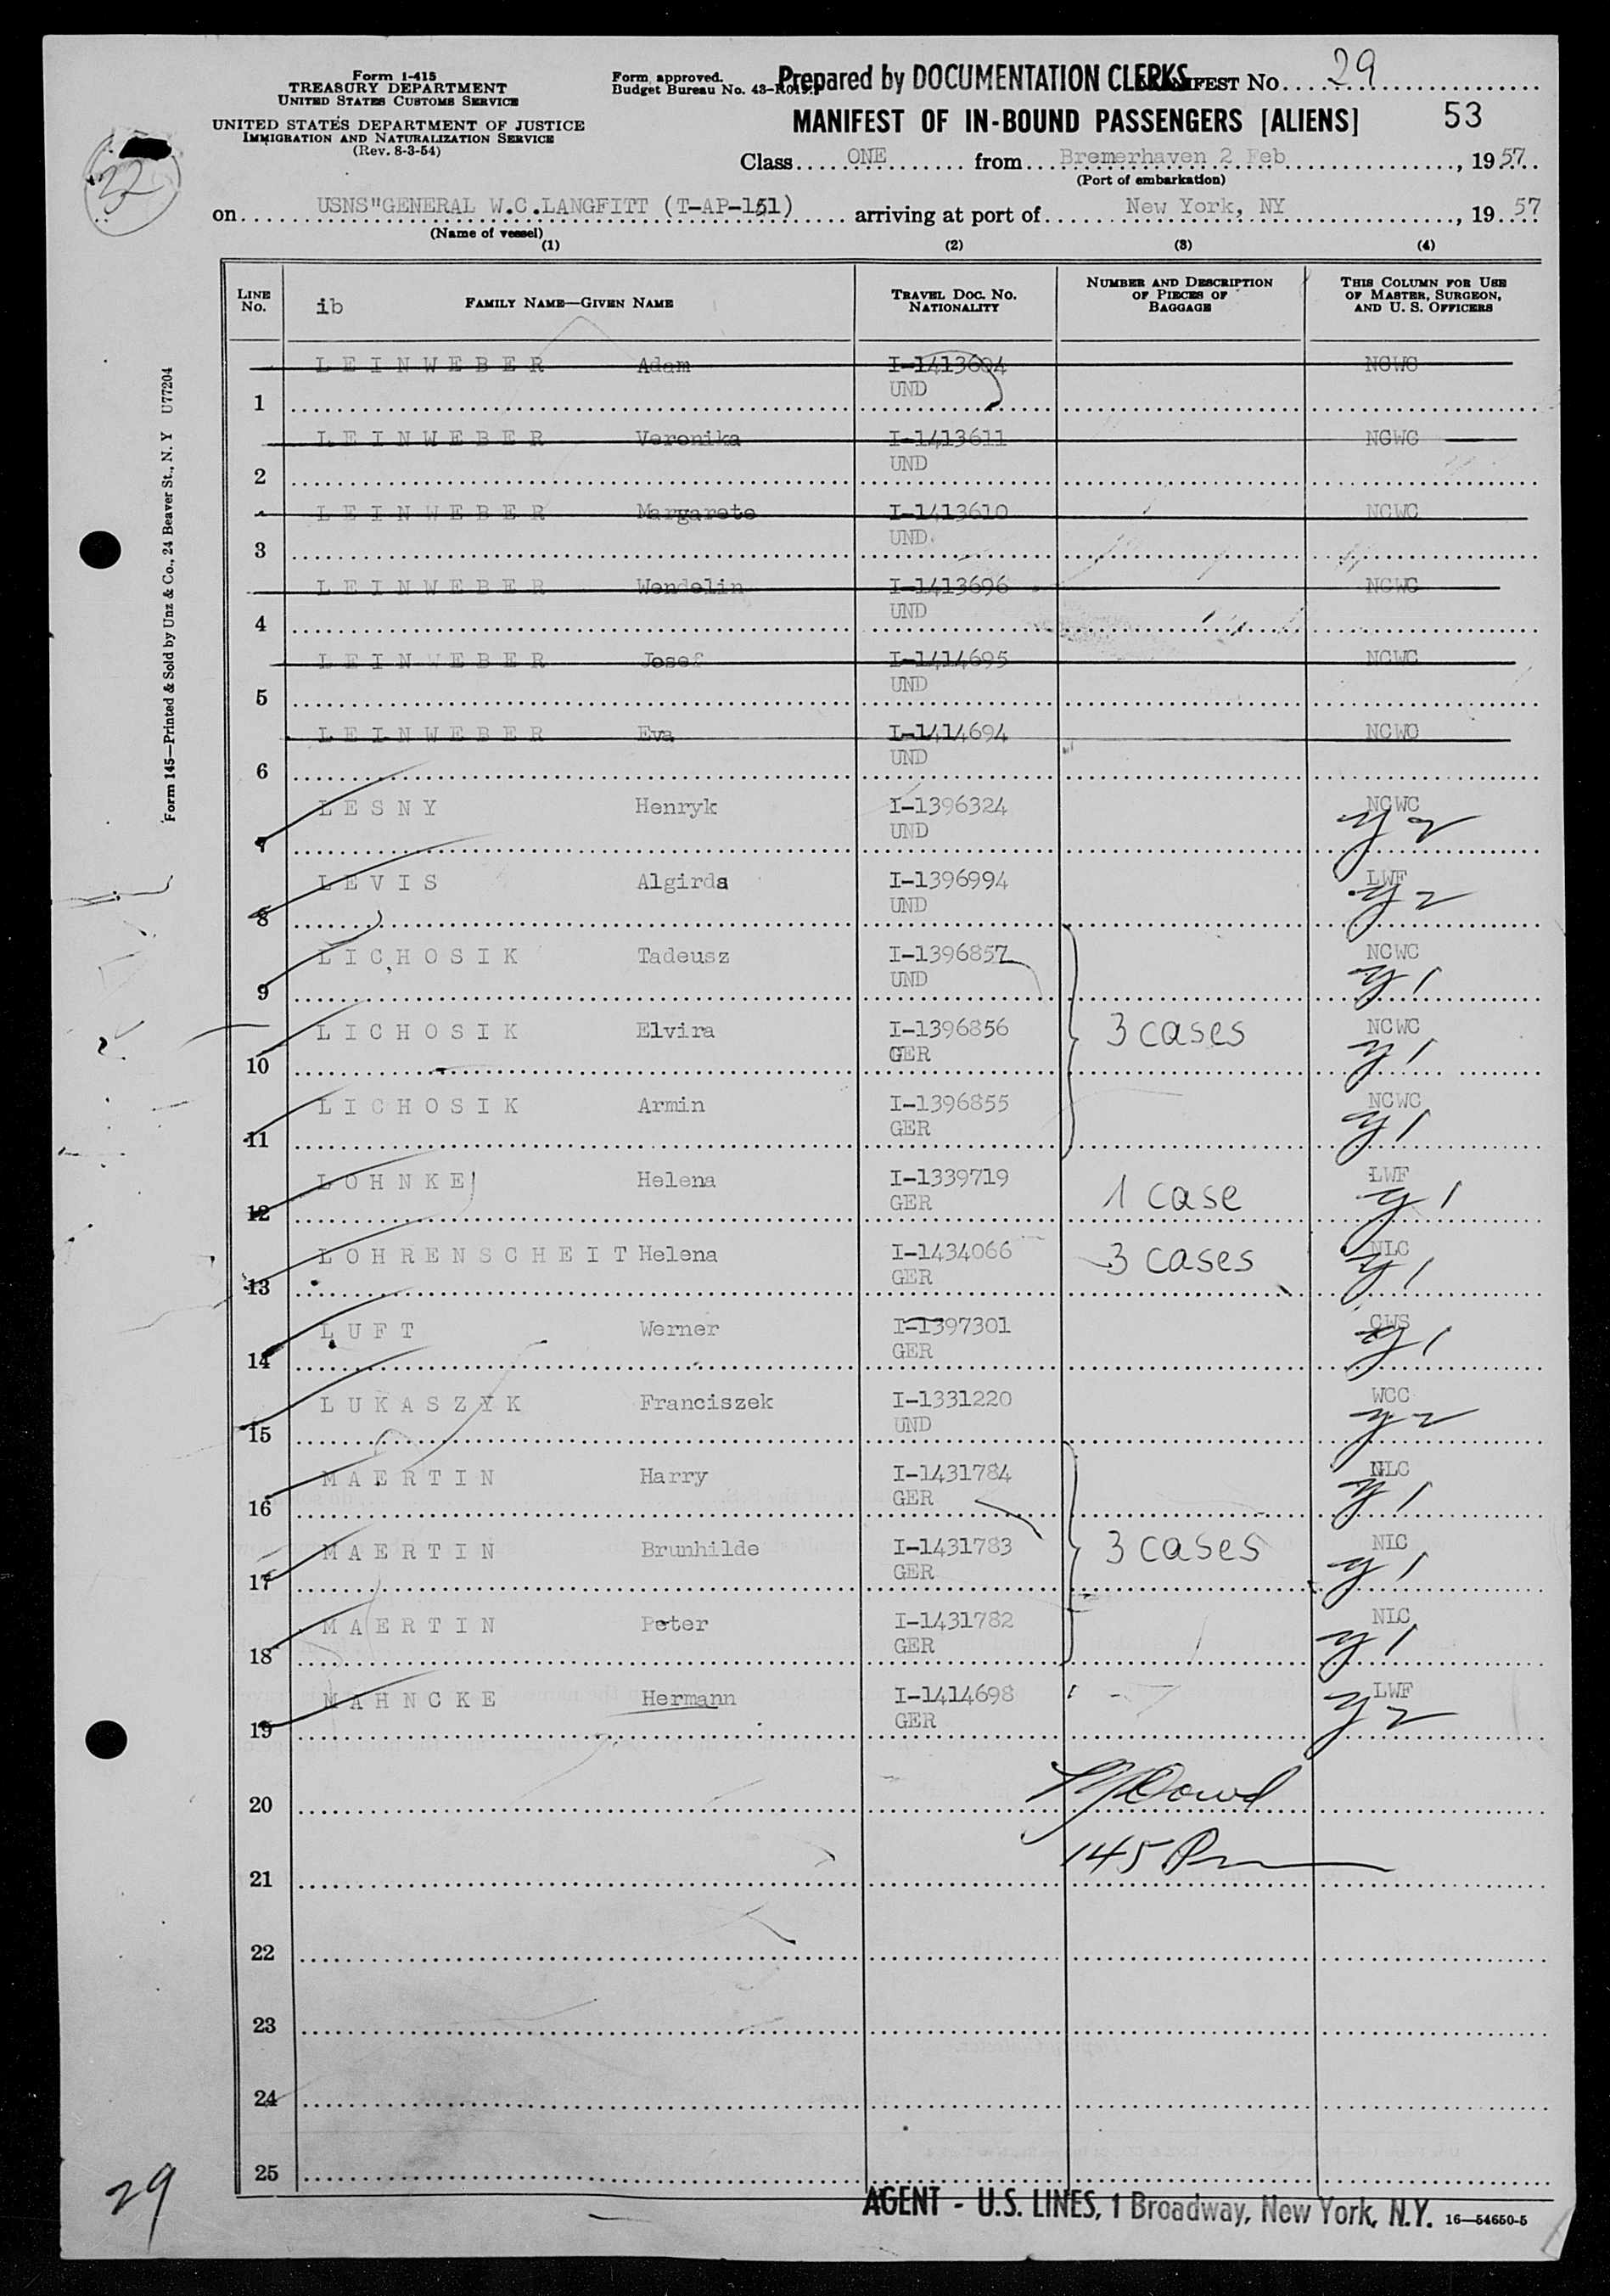 Form I-415
TREASURY DEPARTMENT
UNITED STATES CUSTOMS SERVICE
UNITED STATES DEPARTMENT OF JUSTICE
IMMIGRATION AND NATURALIZATION SERVICE
(Rev. 8-3-54)
Form approved.
Budget Bureau No. 43-R019.
Prepared by DOCUMENTATION CLERKS
MANIFEST NO. 29
MANIFEST OF IN-BOUND PASSENGERS [ALIENS] 53
32
Class ONE from Bremerhaven 2 Feb, 1957
(Port of embarkation)
on USNS"GENERAL W.C.LANGFITT (T-AP-151) arriving at port of New York, NY, 1957
(Name of vessel)
(1) (2) (3) (4)
LINE NO. ib FAMILY NAME—GIVEN NAME TRAVEL DOC. NO. NATIONALITY NUMBER AND DESCRIPTION OF PIECES OF BAGGAGE THIS COLUMN FOR USE OF MASTER, SURGEON, AND U. S. OFFICERS
1 LEINWEBER Adam I-1413694 UND NCWC
2 LEINWEBER Veronika I-1413611 UND NCWC
3 LEINWEBER Margarete I-1413610 UND NCWC
4 LEINWEBER Wendelin I-1413696 UND NCWC
5 LEINWEBER Josef I-1414695 UND NCWC
6 LEINWEBER Eva I-1414694 UND NCWC
7 LESNY Henryk I-1396324 UND NCWC y 2
8 LEVIS Algirda I-1396994 UND LWF y 2
9 LICHOSIK Tadeusz I-1396857 UND NCWC y 1
10 LICHOSIK Elvira I-1396856 GER 3 cases NCWC y 1
11 LICHOSIK Armin I-1396855 GER NCWC y 1
12 LOHNKE Helena I-1339719 GER 1 case LWF y 1
13 LOHRENSCHEIT Helena I-1434066 GER 3 cases NLC y 1
14 LUFT Werner I-1397301 GER CWS y 1
15 LUKASZYK Franciszek I-1331220 UND WCC y 2
16 MAERTIN Harry I-1431784 GER NLC y 1
17 MAERTIN Brunhilde I-1431783 GER 3 cases NLC y 1
18 MAERTIN Peter I-1431782 GER NLC y 1
19 MAHNCKE Hermann I-1414698 GER LWF y 2
20
21 145 Pm
22
23
24
25
Form 145—Printed & Sold by Unz & Co., 24 Beaver St., N. Y U77204
29
AGENT - U.S. LINES, 1 Broadway, New York, N.Y. 16—54650-5